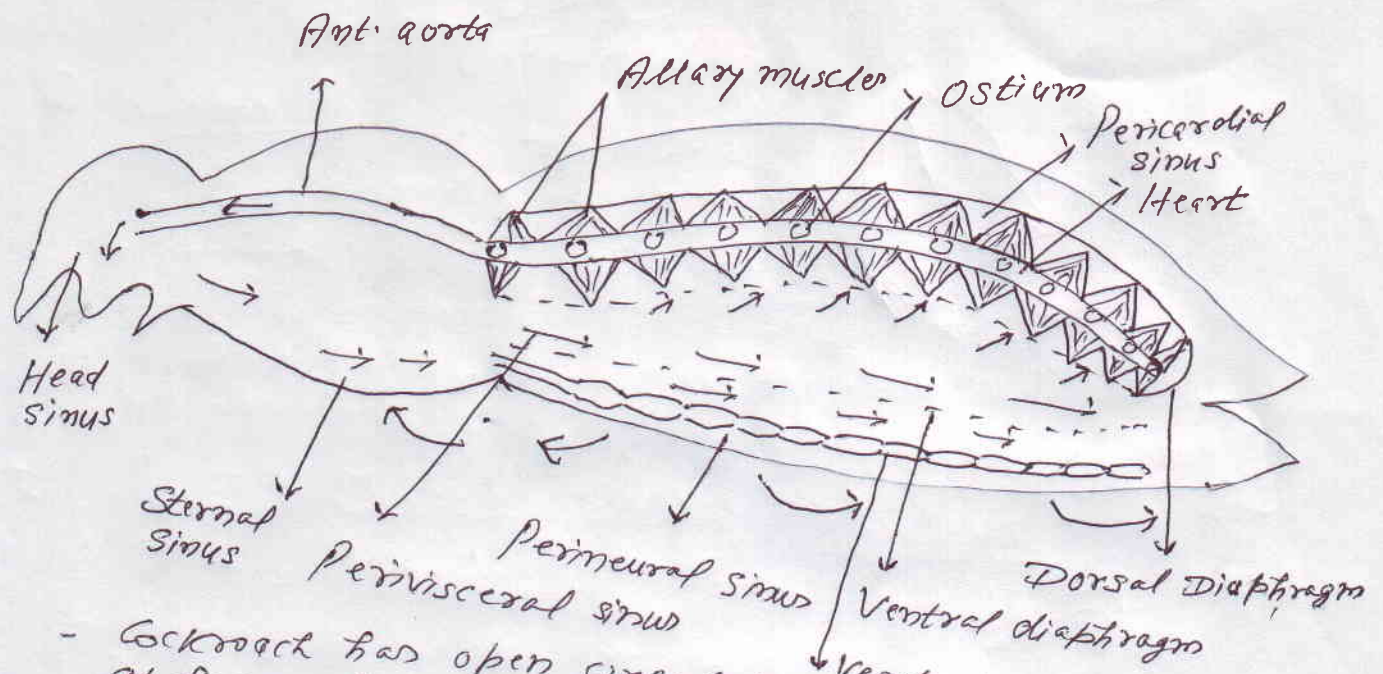 Ant. aorta
Allary muscles
Ostium
Pericardial
sinus
Heart
Head
sinus
Sternal
sinus
Perivisceral sinus
Perineural sinus
Ventral diaphragm
Dorsal Diaphragm
- Cockroach has open